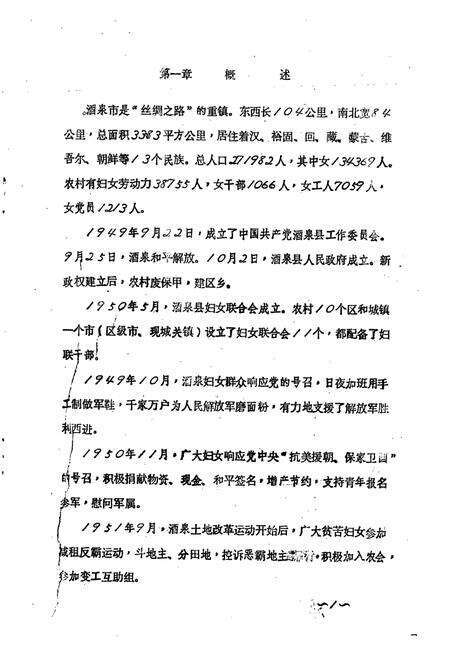 第一章 概 述
酒泉市是“丝绸之路”的重镇。东西长104公里，南北宽84
公里，总面积3383平方公里，居住着汉、裕固、回、藏、蒙古、维
吾尔、朝鲜等13个民族。总人口271982人，其中女134369人。
农村有妇女劳动力38755人，女干部1066人，女工人7059人，
女党员1213人。
1949年9月22日，成立了中国共产党酒泉县工作委员会。
9月25日，酒泉和平解放。10月2日，酒泉县人民政府成立。新
政权建立后，农村废保甲，建区乡。
1950年5月，酒泉县妇女联合会成立。农村10个区和城镇
一个市（区级市、现城关镇）设立了妇女联合会11个，都配备了妇
联干部。
1949年10月，酒泉妇女群众响应党的号召，日夜加班用手
工制做军鞋，千家万户为人民解放军磨面粉，有力地支援了解放军胜
利西进。
1950年11月，广大妇女响应党中央“抗美援朝、保家卫国”
的号召，积极捐献物资、现金、和平签名，增产节约，支持青年报名
参军，慰问军属。
1951年9月，酒泉土地改革运动开始后，广大贫苦妇女参加
减租反霸运动，斗地主、分田地，控诉恶霸地主 积极加入农会，
参加变工互助组。
～1～